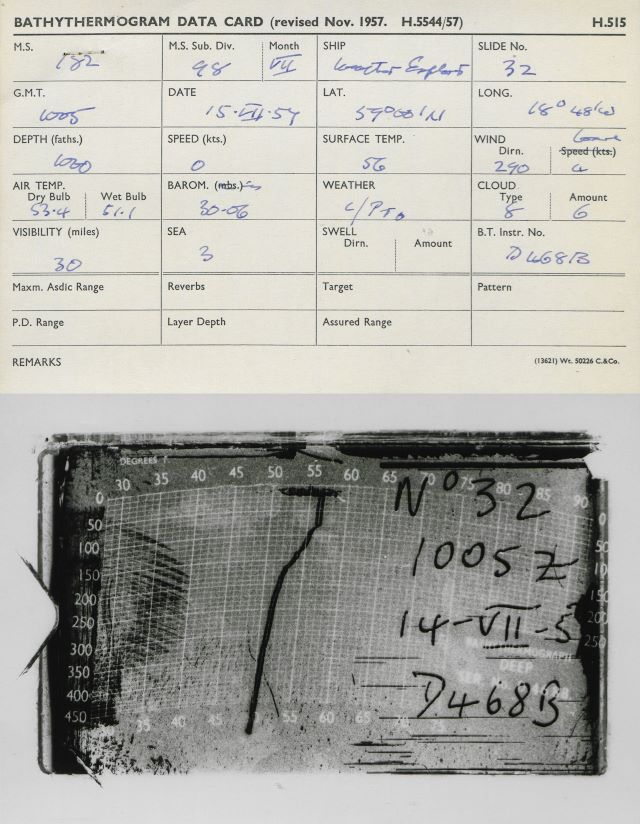 BATHYTHERMOGRAM DATA CARD (revised Nov. 1957. H.5544/57) H.515
M.S. M.S. Sub. Div. Month SHIP SLIDE No.
182 98 VII Weather 32
G.M.T. DATE LAT. LONG.
1005 15·VII·59 59°00'N 18° 48'W
DEPTH (faths.) SPEED (kts.) SURFACE TEMP. WIND
Dirn. Speed (kts.)
1000 0 56 290 4
AIR TEMP. BAROM. (mbs.) WEATHER CLOUD
Dry Bulb Wet Bulb Type Amount
53.4 51.1 30.06 8 6
VISIBILITY (miles) SEA SWELL B.T. Instr. No.
Dirn. Amount
30 3 D468B
Maxm. Asdic Range Reverbs Target Pattern
P.D. Range Layer Depth Assured Range
REMARKS (13621) Wt. 50226 C.&Co.
DEGREES F
30 35 40 45 50 55 60 65 70 75 80 85 90
0 0
50 50
100
150
200 200
250 250
300
350
400
450
35 40 55 60 65 70
No 32
1005 Z
14-VII-5
DEEP
D468B